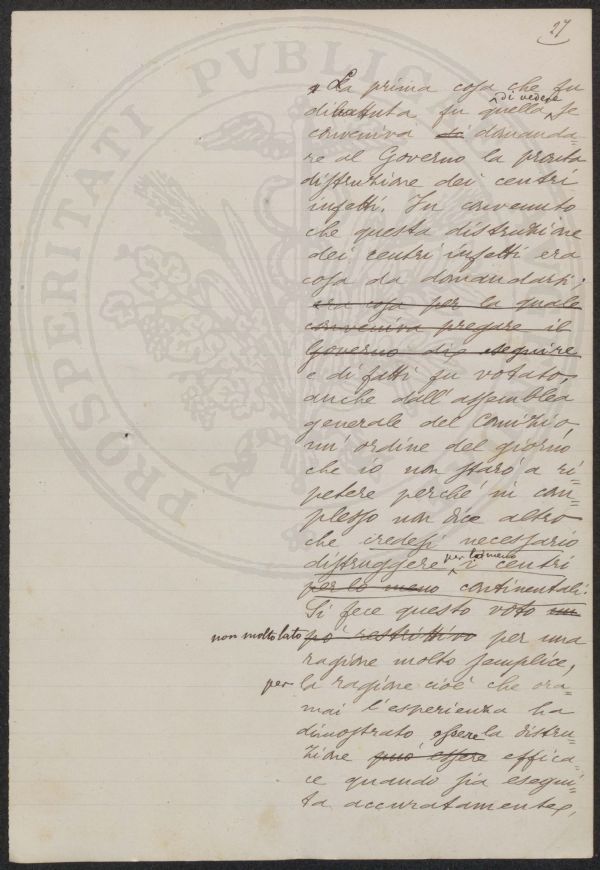 27
La prima cosa che fu
dibattuta fu quella di vedere se
conveniva di domanda-
re al Governo la pronta
distruzione dei centri
infetti. Fu convenuto
che questa distruzione
dei centri infetti era
cosa da domandarsi,
era cosa per la quale
conveniva pregare il
Governo di eseguire
e di fatti fu votato,
anche dall'assemblea
generale del Comizio
un'ordine del giorno
che io non starò a ri=
petere perché in com=
plesso non dice altro
che credesi necessario
distruggere per lo meno i centri
per lo meno continentali.
Si fece questo voto un
non molto lato pò restrittivo per una
ragione molto semplice,
per la ragione cioè che ora=
mai l'esperienza ha
dimostrato essere la distru=
zione può essere effica=
ce quando sia esegui=
ta accuratamente,
PROSPERITATI PVBLICAE